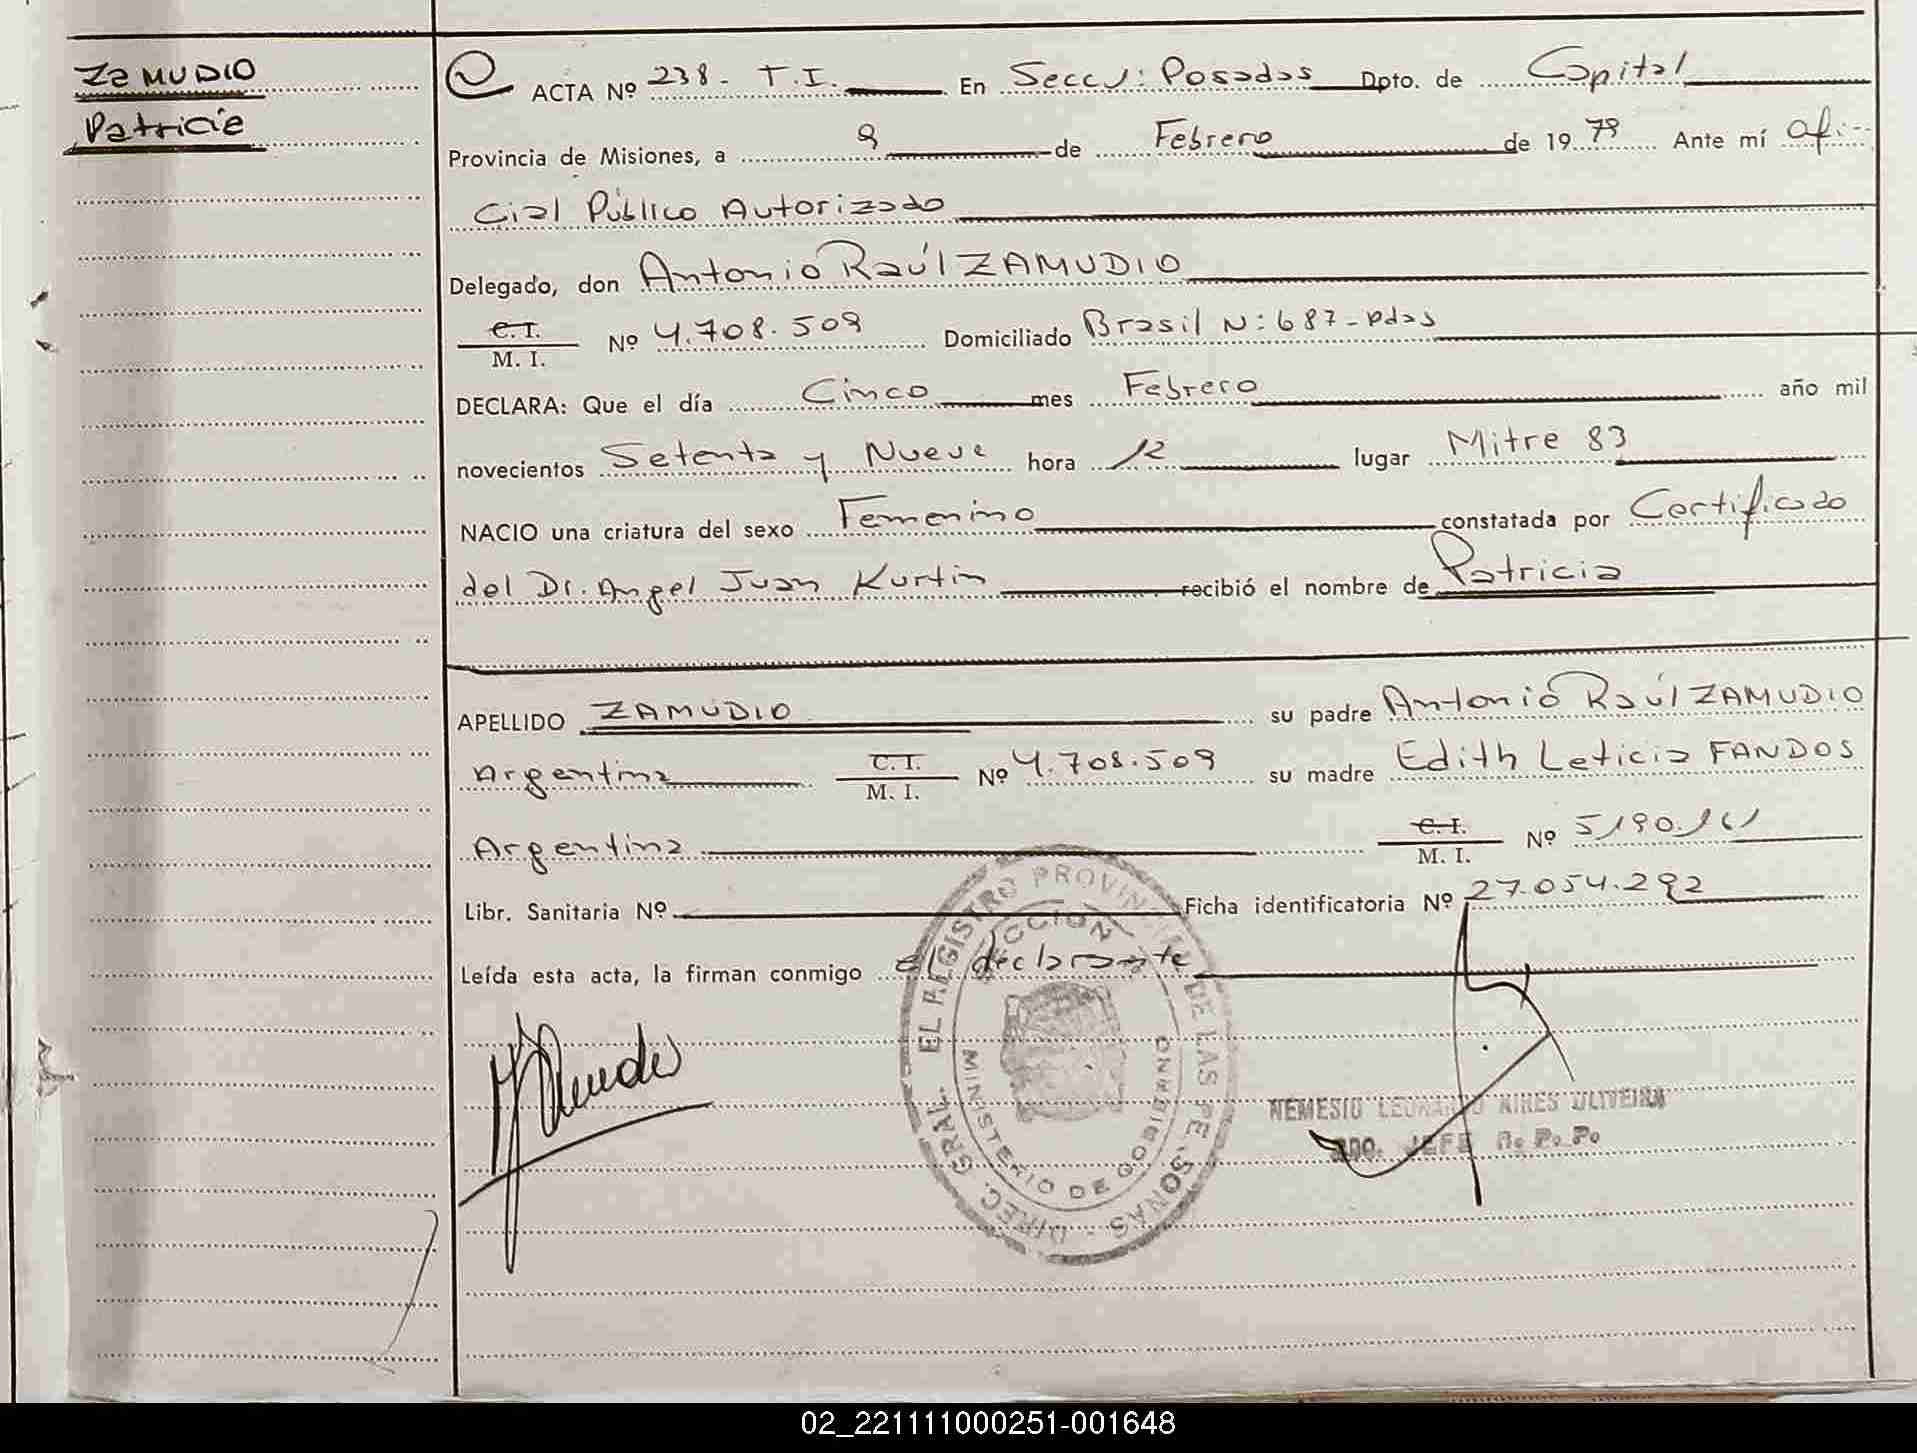 ZAMUDIO
Patricia
ACTA Nº 238- T.I. En Secc: Posadas Dpto. de Capital
Provincia de Misiones, a 9 de Febrero de 1979 Ante mí Ofi-
cial Público Autorizado
Delegado, don Antonio Raúl ZAMUDIO
C.I.
M. I. Nº 4.708.509 Domiciliado Brasil N: 687-pdas
DECLARA: Que el día Cinco mes Febrero año mil
novecientos Setenta y Nueve hora 12 lugar Mitre 83
NACIO una criatura del sexo Femenino constatada por Certificado
del Dr. Angel Juan Kurtin recibió el nombre de Patricia
APELLIDO ZAMUDIO su padre Antonio Raúl ZAMUDIO
Argentina C.I.
M. I. Nº 4.708.509 su madre Edith Leticia FANDOS
Argentina C.I.
M. I. Nº 5190.161
Libr. Sanitaria Nº Ficha identificatoria Nº 27.054.292
Leída esta acta, la firman conmigo el declarante
DIREC. GRAL. EL REGISTRO PROVINCIAL DE LAS PERSONAS
DIRECCION
MINISTERIO DE GOBIERNO
NEMESIO LEONARDO AIRES OLIVEIRA
2DO. JEFE R. P. P.
02_221111000251-001648